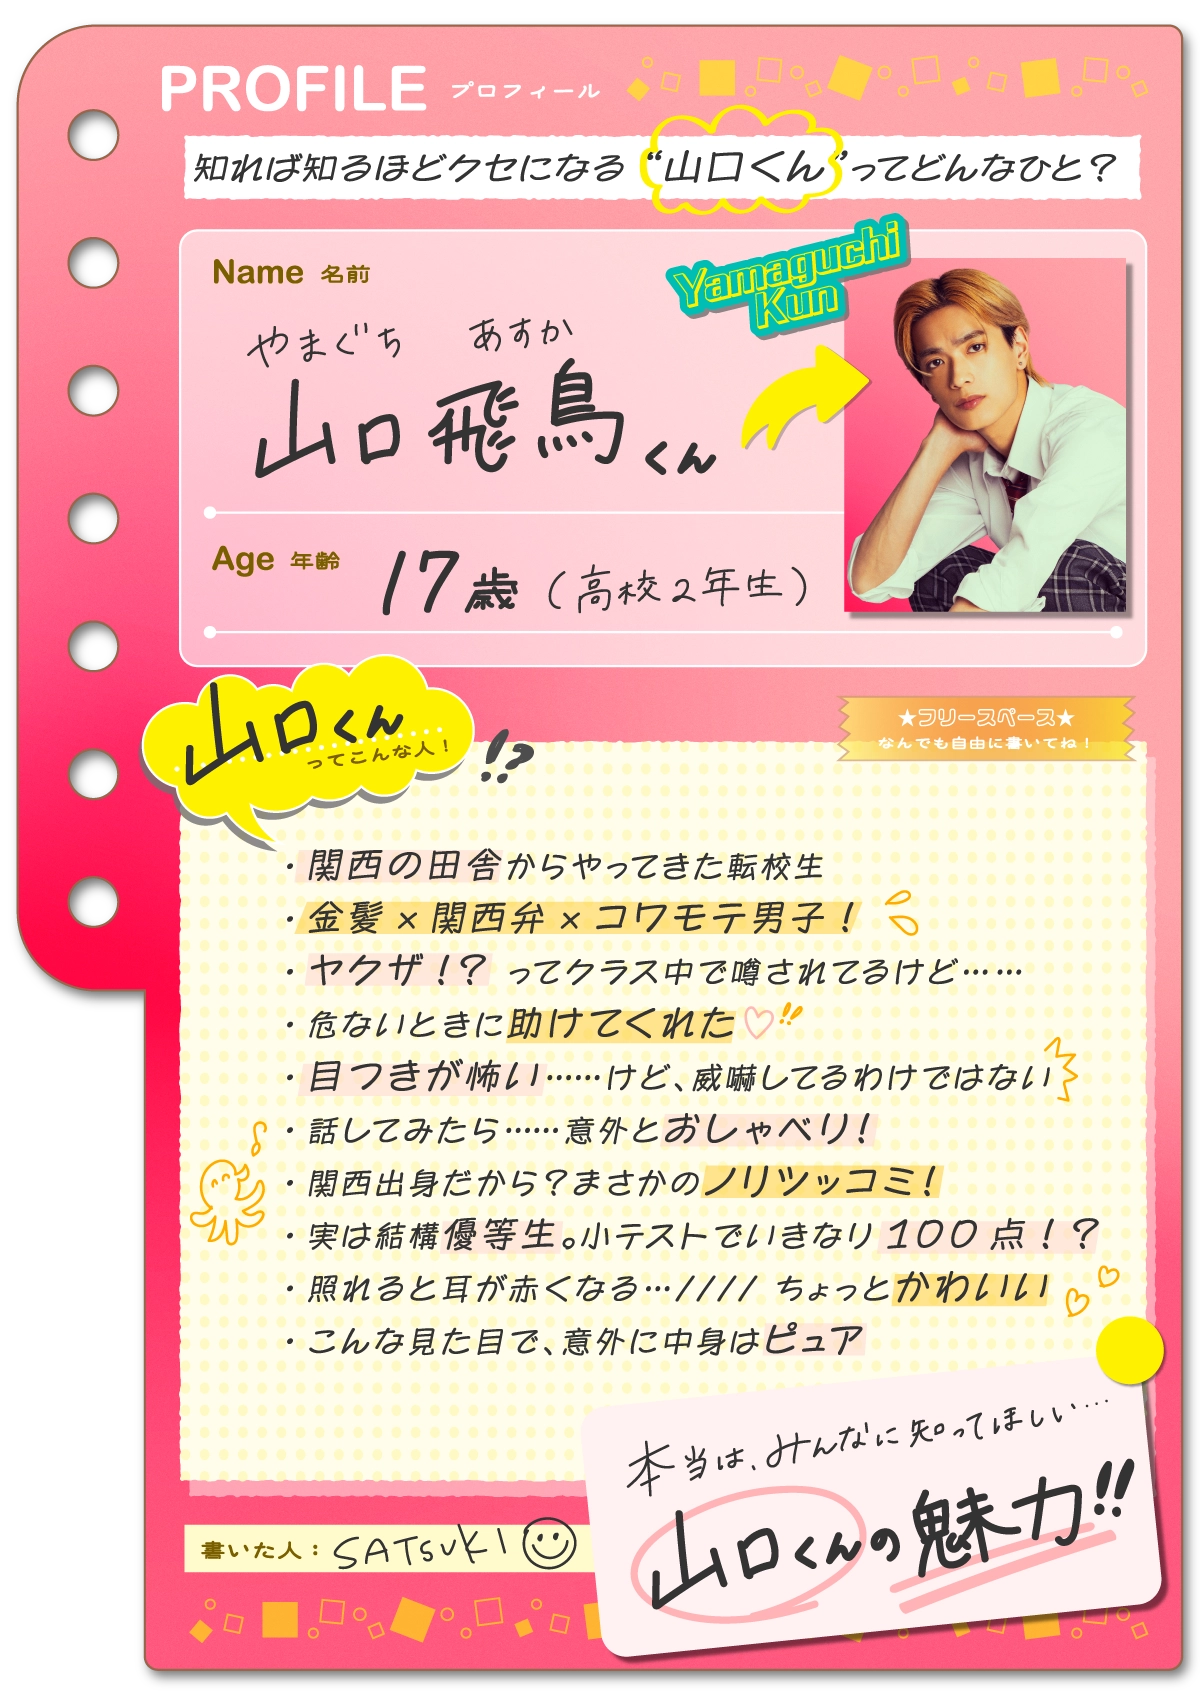 PROFILE プロフィール
知れば知るほどクセになる “山口くん”ってどんなひと？
Name 名前
Yamaguchi
Kun
やまぐち あすか
山口飛鳥くん
Age 年齢 17歳（高校2年生）
山口くん
ってこんな人！
!?
★フリースペース★
なんでも自由に書いてね！
・関西の田舎からやってきた転校生
・金髪×関西弁×コワモテ男子！
・ヤクザ！？ ってクラス中で噂されてるけど……
・危ないときに助けてくれた♡!!
・目つきが怖い……けど、威嚇してるわけではない
・話してみたら……意外とおしゃべり！
・関西出身だから？まさかのノリツッコミ！
・実は結構優等生。小テストでいきなり100点！？
・照れると耳が赤くなる…//// ちょっとかわいい
・こんな見た目で、意外に中身はピュア
本当は、みんなに知ってほしい…
山口くんの魅力!!
書いた人：SATSUKI